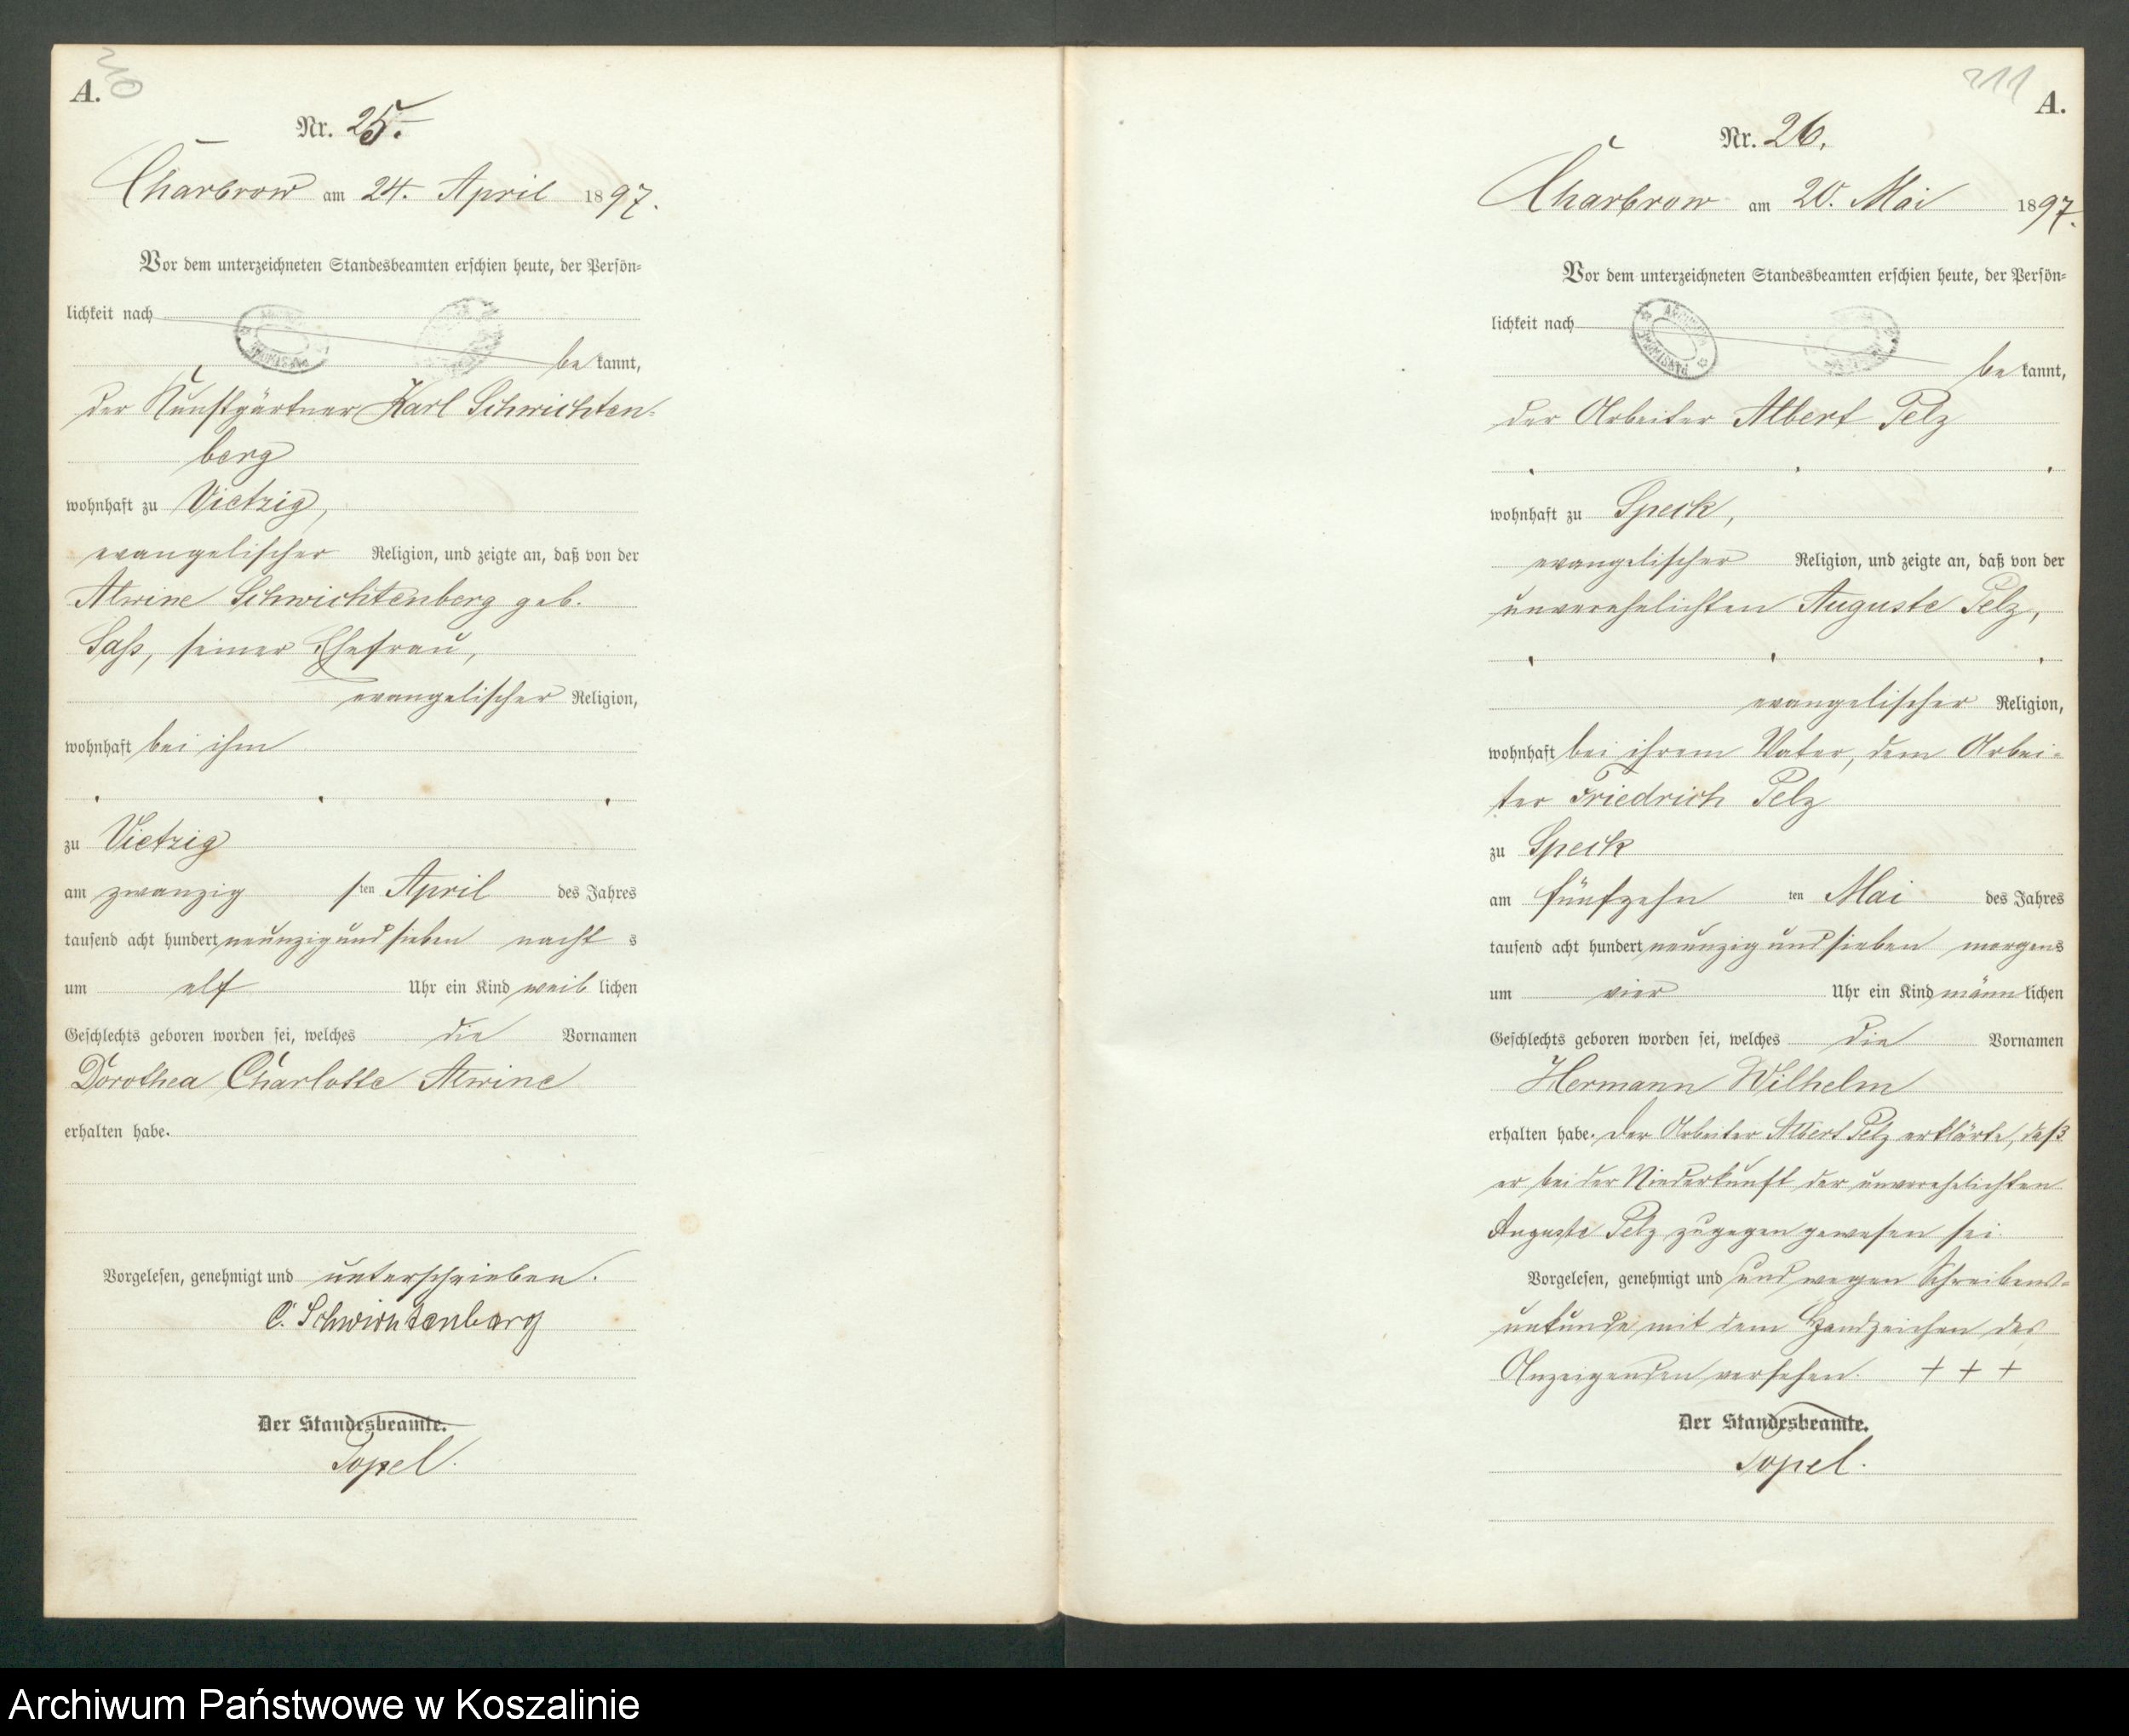 210
A.
Nr. 25.
Charbrow am 24. April 1897.
Vor dem unterzeichneten Standesbeamten erschien heute, der Persön-
lichkeit nach
be kannt,
der Kunstgärtner Karl Schwichten-
berg
wohnhaft zu Vietzig,
evangelischer Religion, und zeigte an, daß von der
Alwine Schwichtenberg geb.
Sass, seiner Ehefrau,
evangelischer Religion,
wohnhaft bei ihm
zu Vietzig
am zwanzig sten April des Jahres
tausend acht hundert neunzig und sieben nacht s
um elf Uhr ein Kind weib lichen
Geschlechts geboren worden sei, welches die Vornamen
Dorothea Charlotte Alwine
erhalten habe.
Vorgelesen, genehmigt und unterschrieben.
C. Schwichtenberg
Der Standesbeamte.
Topel.
211
A.
Nr. 26.
Charbrow am 20. Mai 1897.
Vor dem unterzeichneten Standesbeamten erschien heute, der Persön-
lichkeit nach
be kannt,
der Arbeiter Albert Pelz
wohnhaft zu Speck,
evangelischer Religion, und zeigte an, daß von der
unverehelichten Auguste Pelz,
evangelischer Religion,
wohnhaft bei ihrem Vater, dem Arbei-
ter Friedrich Pelz
zu Speck
am fünfzehn ten Mai des Jahres
tausend acht hundert neunzig und sieben morgens
um vier Uhr ein Kind männ lichen
Geschlechts geboren worden sei, welches die Vornamen
Hermann Wilhelm
erhalten habe. Der Arbeiter Albert Pelz erklärte, daß
er bei der Niederkunft der unverehelichten
Auguste Pelz zugegen gewesen sei.
Vorgelesen, genehmigt und und wegen Schreibens-
unkunde mit dem Handzeichen des
Anzeigenden versehen. + + +
Der Standesbeamte.
Topel.
Archiwum Państwowe w Koszalinie